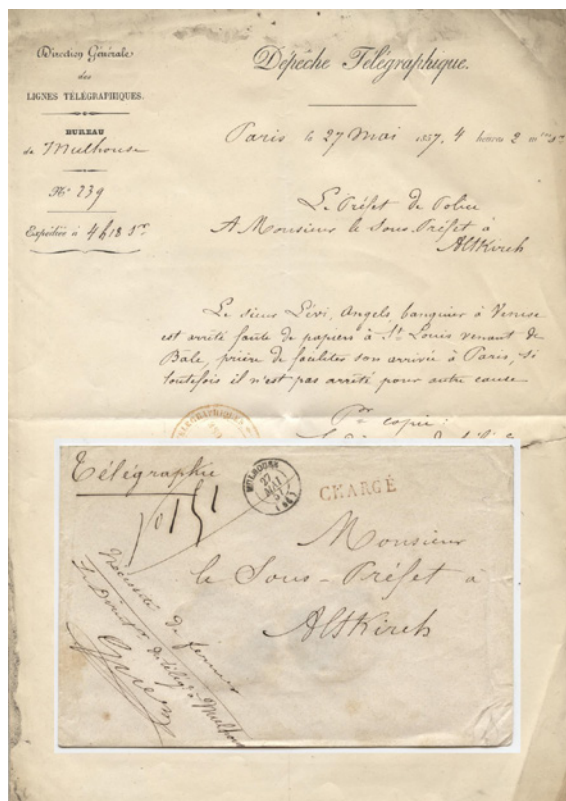 Direction Générale
des
LIGNES TÉLÉGRAPHIQUES.
BUREAU
de Mulhouse
No 239
Expédiée à 4 h 18 Sr
Dépêche Télégraphique.
Paris le 27 Mai 1857, 4 heures 2 mtes Sr
Le Préfet de Police
A Monsieur le Sous-Préfet à
Altkirch
Le sieur Lévi, Angelo, banquier à Venise
est arrêté faute de papiers à St Louis venant de
Bâle, prière de faciliter son arrivée à Paris, si
toutefois il n'est pas arrêté pour autre cause
Pr copie:
TÉLÉGRAPHIQUES
Télégraphie
MULHOUSE
27
MAI
57
CHARGÉ
Monsieur
le Sous-Préfet à
Altkirch
Nécessité de fermer
Le Directr du télégr. à Mulhouse